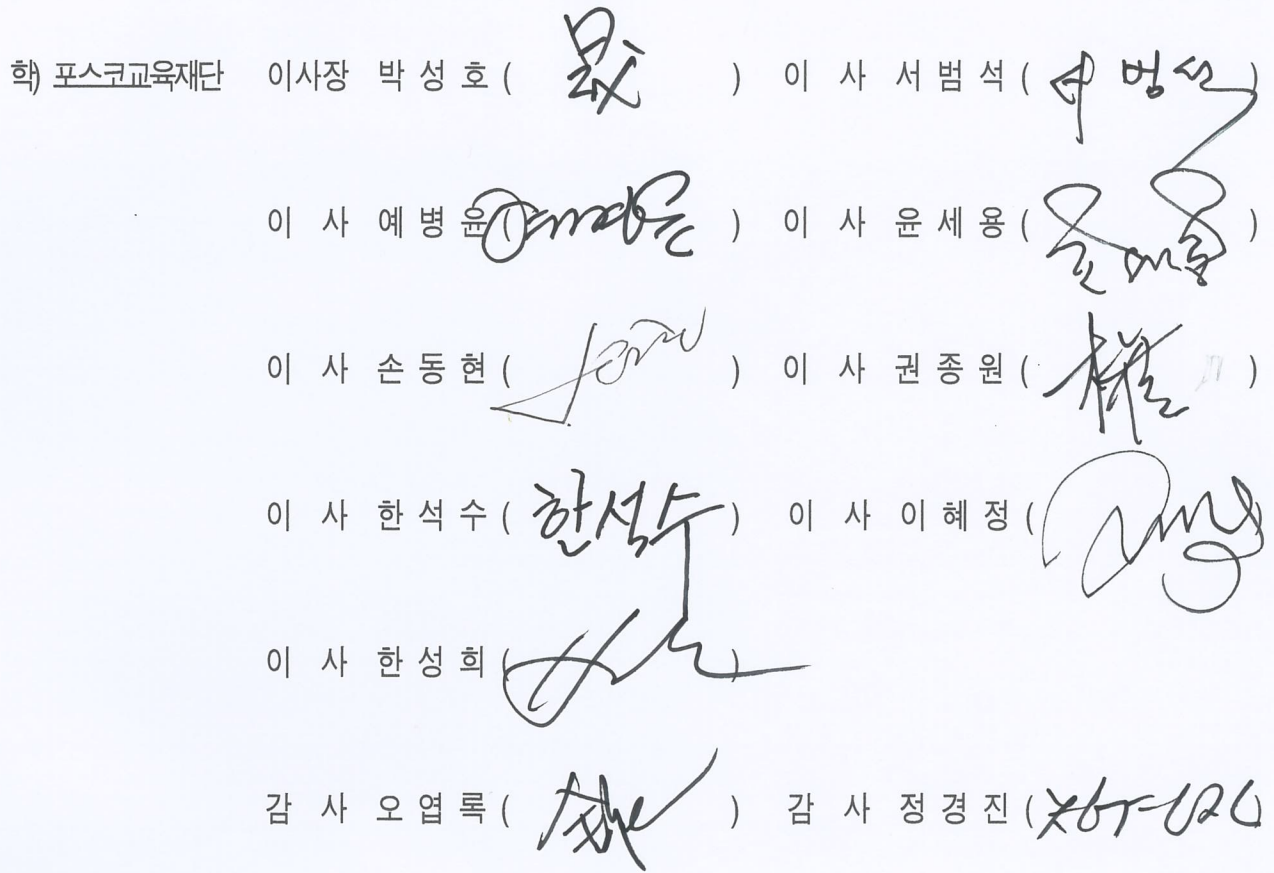 학) 포스코교육재단 이사장 박성호( ) 이 사 서범석( 서범석 )
이 사 예병윤( ) 이 사 윤세용( )
이 사 손동현( ) 이 사 권종원( )
이 사 한석수( 한석수 ) 이 사 이혜정( )
이 사 한성희( )
감 사 오엽록( ) 감 사 정경진( )